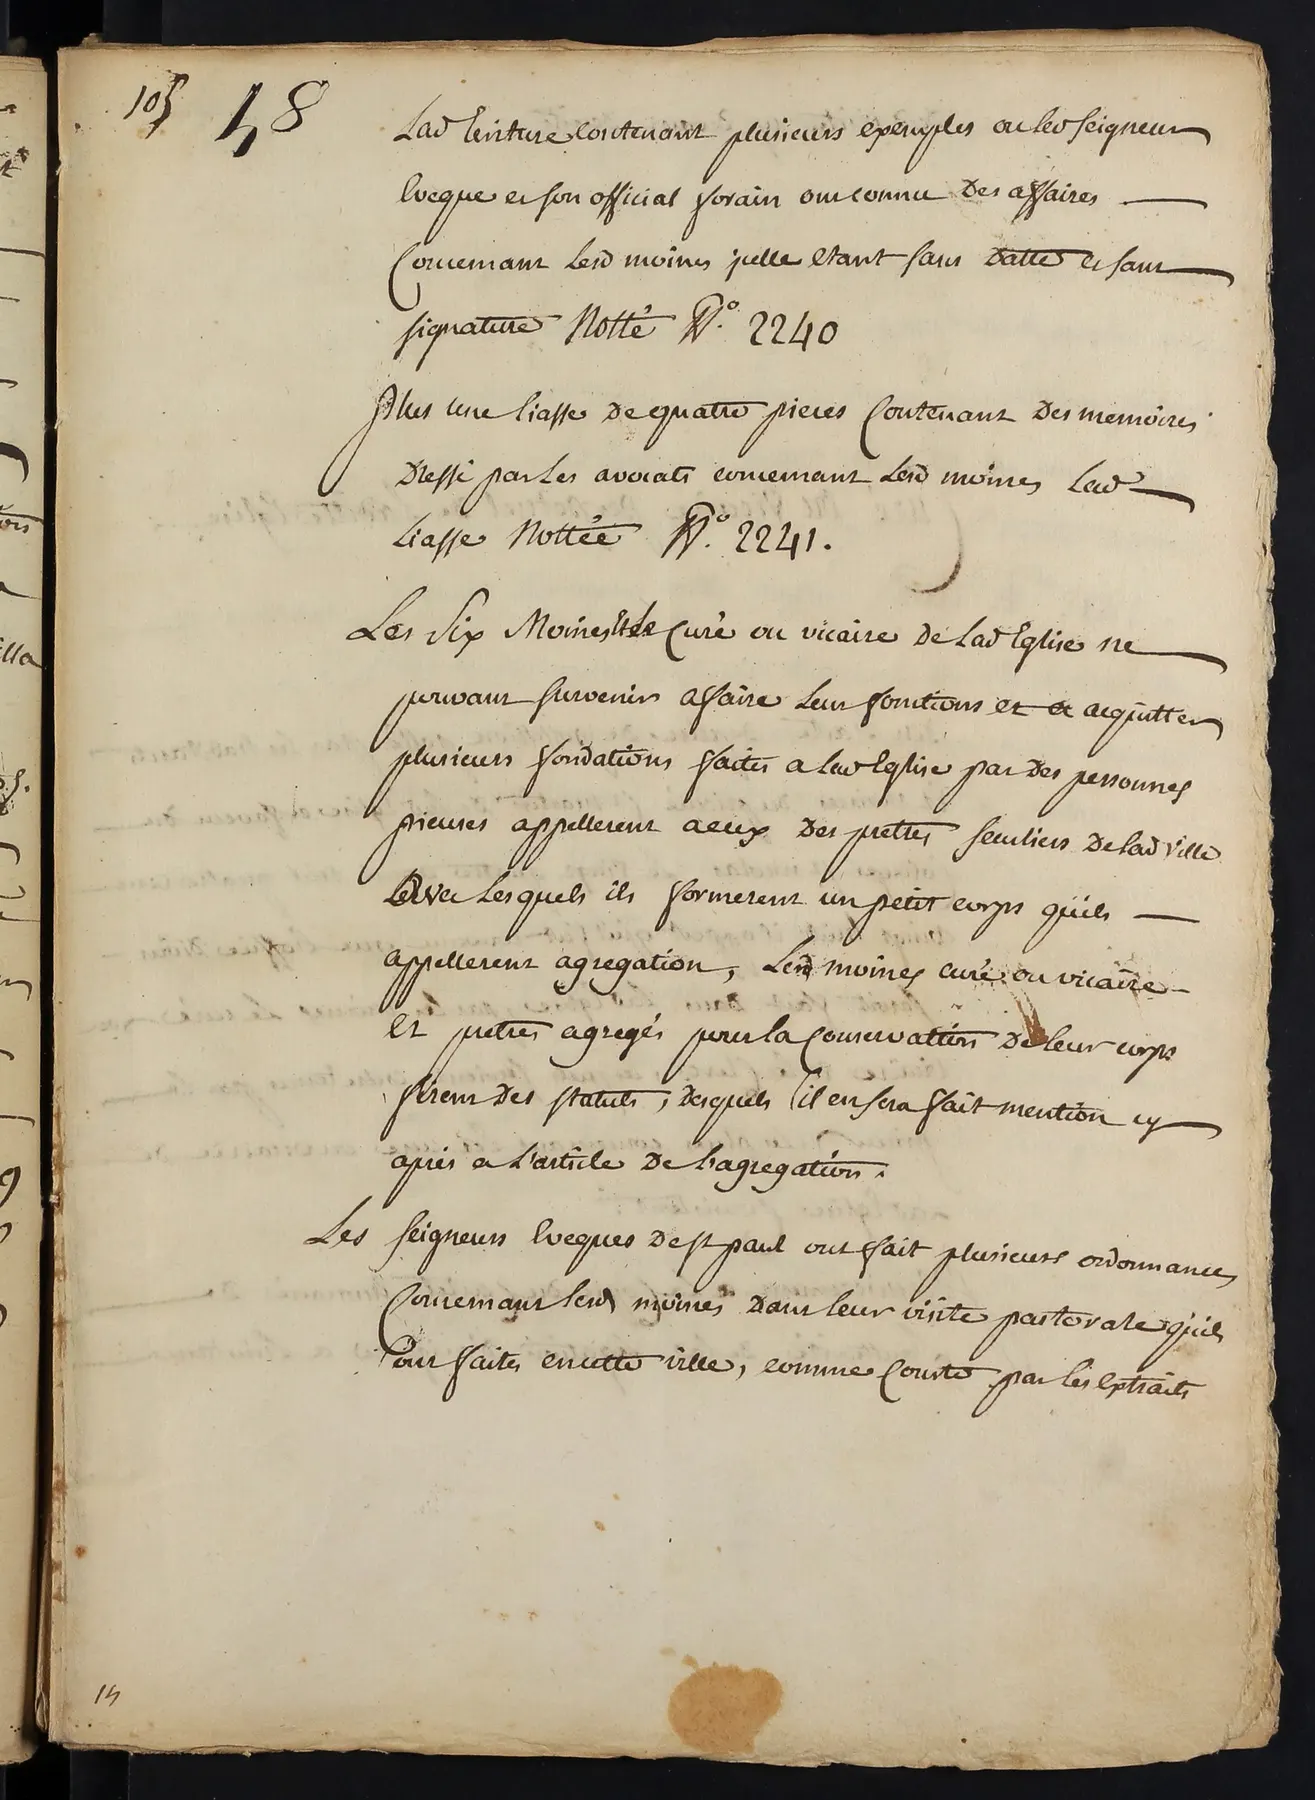 105 48
Lad Ecriture contenant plusieurs exemples ou led seigneur
Eveque et son official forain ont connu des affaires
Concernant Lesd moines jcelle etant sans datte et sans
signature Notté N.o 2240
Plus une liasse de quatre pieces Contenant des memoires
dressé par les avocats concernant Lesd moines Lad
Liasse Nottée N.o 2241.
Les Six Moines et le Curé ou vicaire de Lad Eglise ne
pouvant survenir affaire leur fonctions et acquitter
plusieurs fondations faites a lad Eglise par des personnes
pieuses appellerent a eux des pretres seculiers de lad ville
avec Lesquels ils formerent un petit corps quils
appellerent agregation, Lesd moines curé ou vicaire
Et pretres agregés pour la Conservation de leur corps
firent des statuts, desquels il en sera fait mention cy
aprés a L'article de l'agregation.
Les seigneurs Eveques de st paul ont fait plusieurs ordonnances
Concernant lesd moines dans leur visite pastorale quils
ont faites en cette ville, comme Conste par les extraits